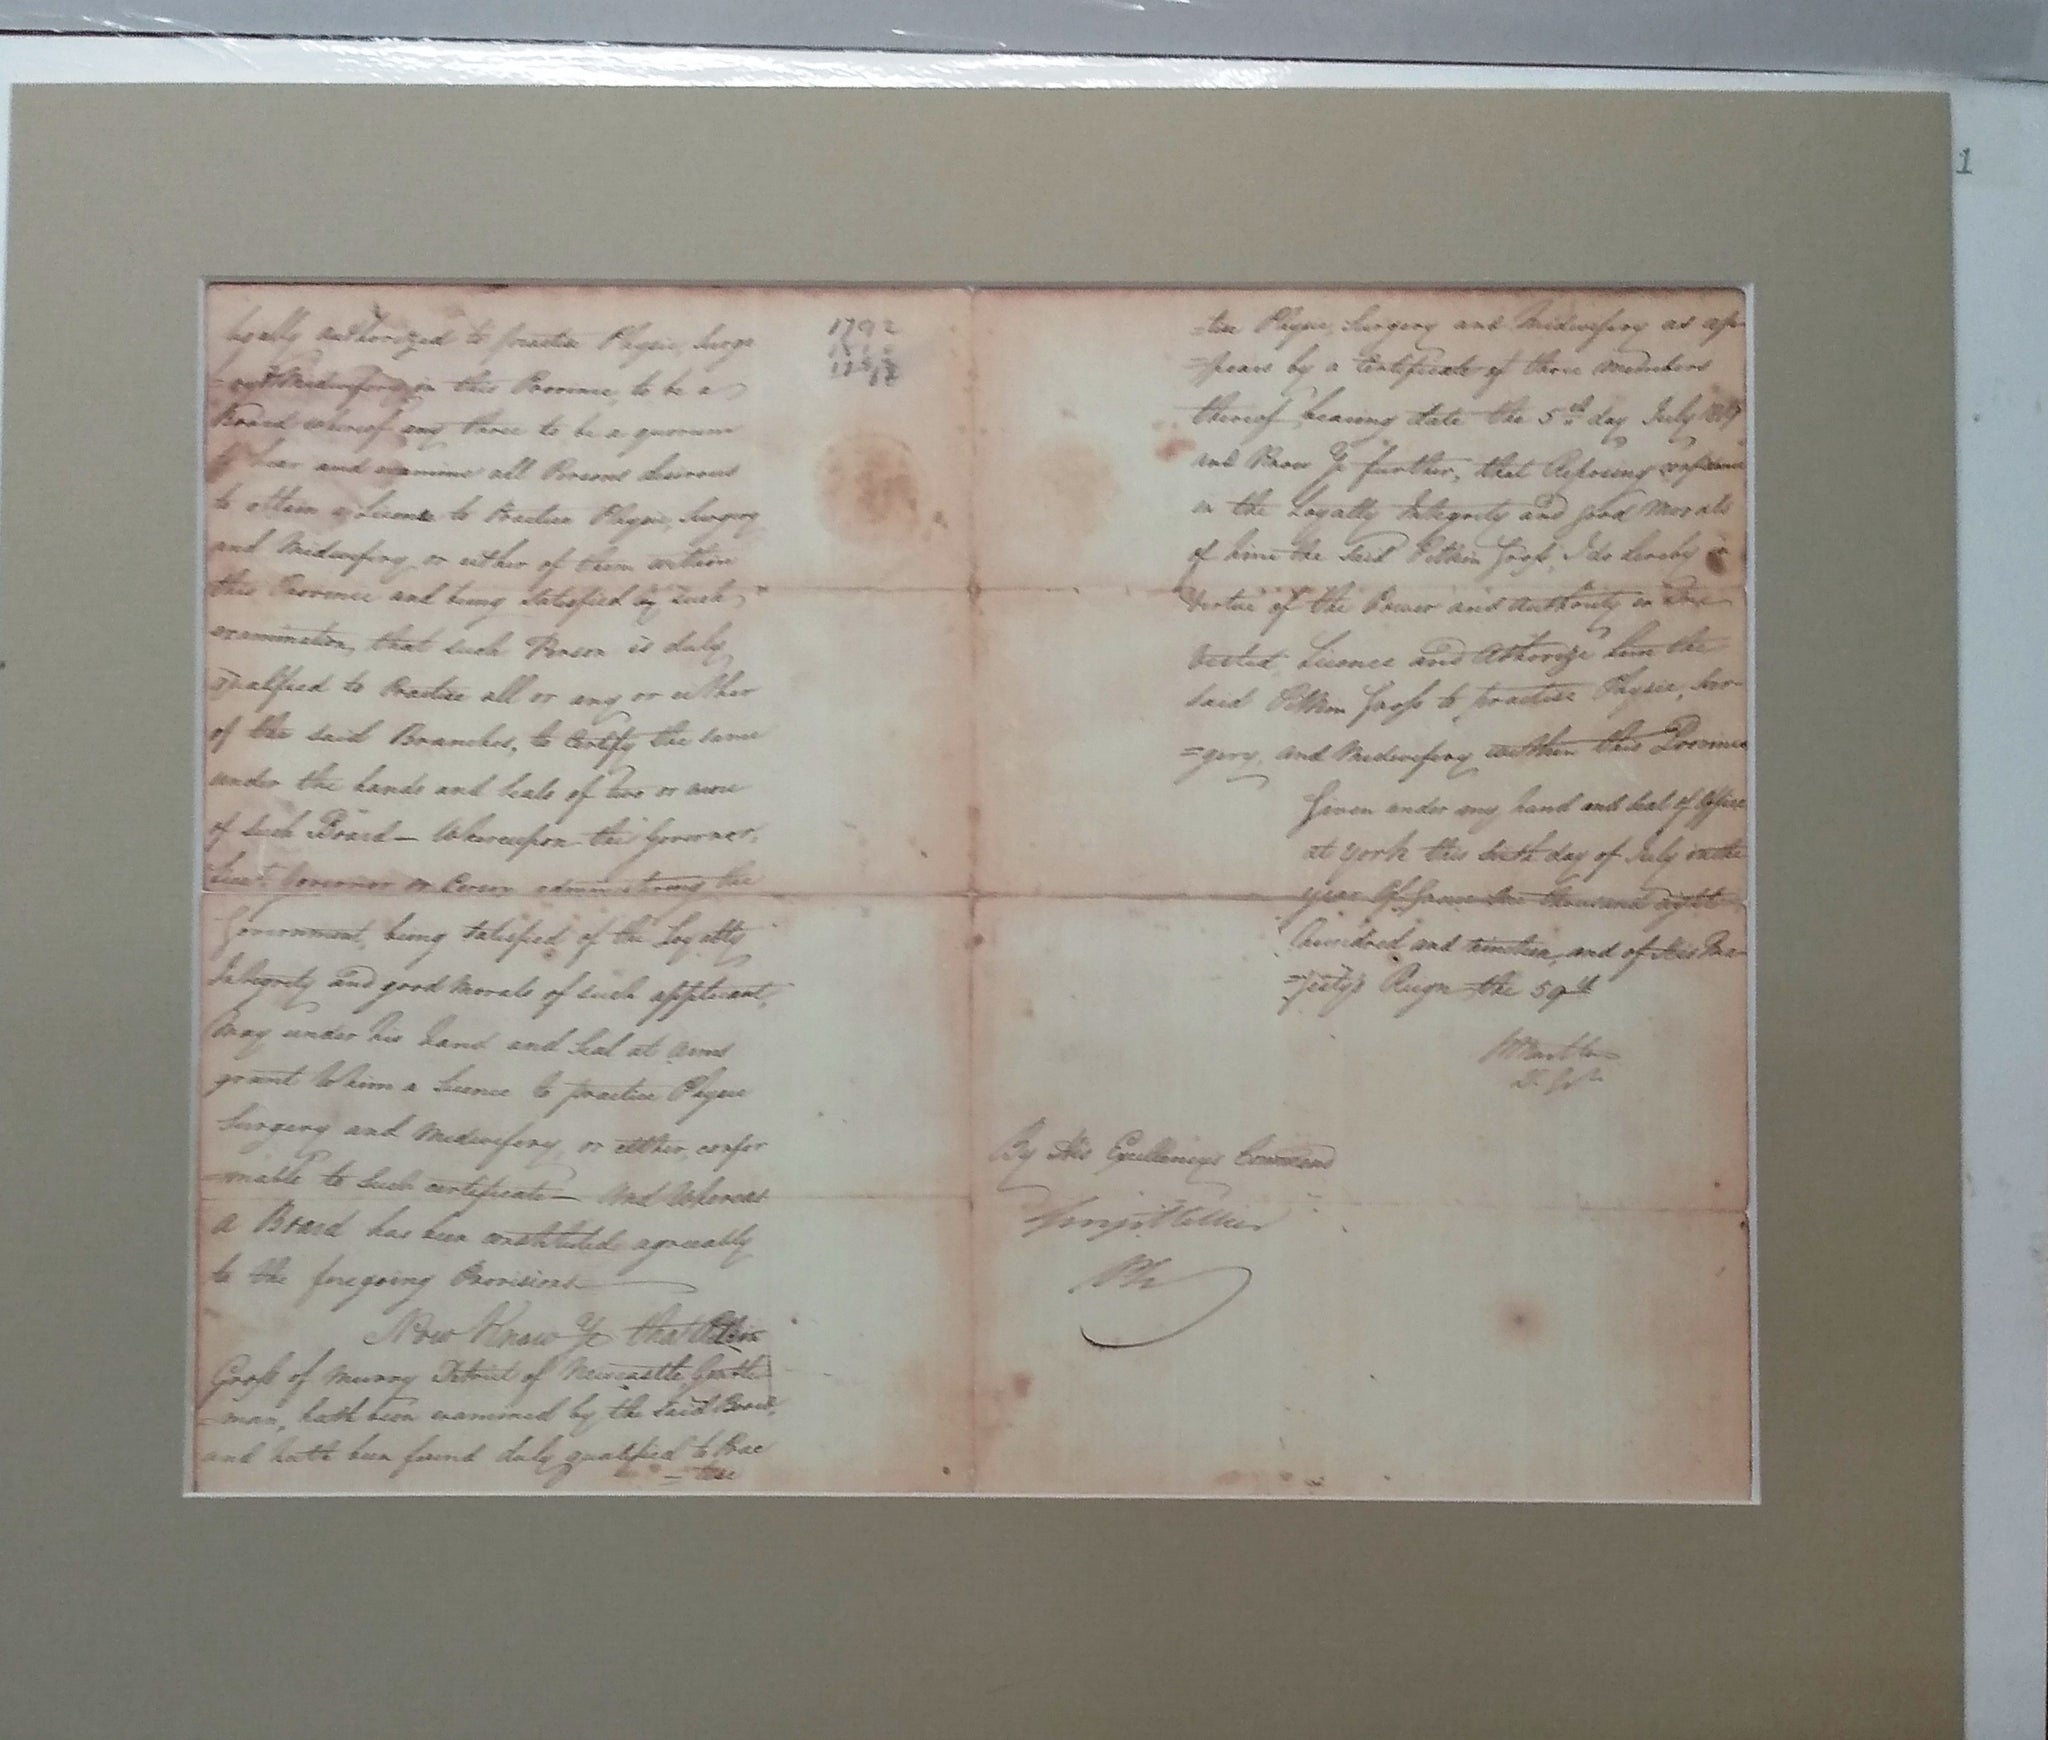 legally authorized to practise Physic, Surge
=ry & Midwifery in this Province, to be a
Board whereof any three to be a quorum
to hear and examine all Persons desirous
to obtain a Licence to Practice Physic, Surgery
and Midwifery or either of them within
this Province and being satisfied by such
examination, that such Person is duly
qualified to Practise all or any or either
of the said Branches, to Certify the same
under the hands and seals of two or more
of such Board — Whereupon the Governor,
Lieut. Governor or Person administering the
Government, being satisfied of the Loyalty
Integrity and good Morals of such applicant,
May under his hand and Seal at Arms
grant to him a Licence to practice Physic
Surgery and Midwifery or either, confor
=mable to such certificate — And Whereas
a Board has been constituted agreeably
to the foregoing Provisions
Now Know Ye that Pitkin
Gross of Murray District of Newcastle Gentle
=man, hath been examined by the said Board,
and hath been found duly qualified to Prac
=tise
1792
=tise Physic, Surgery and Midwifery as ap=
=pears by a Certificate of three members
thereof bearing date the 5th day July 1819
and Know Ye further, that Reposing confidence
in the Loyalty Integrity and good Morals
of him the said Pitkin Gross, I do hereby
Virtue of the Power and Authority in
Vested, Licence and Athorize him the
said Pitkin Gross to practise Physic, Sur=
=gery, and Midwifery within this Province
Given under my hand and Seal of Office
at York this sixth day of July in the
year of Grace One thousand eight
hundred and nineteen, and of His Ma=
=jesty's Reign the 59th
By His Excellencys Command
1